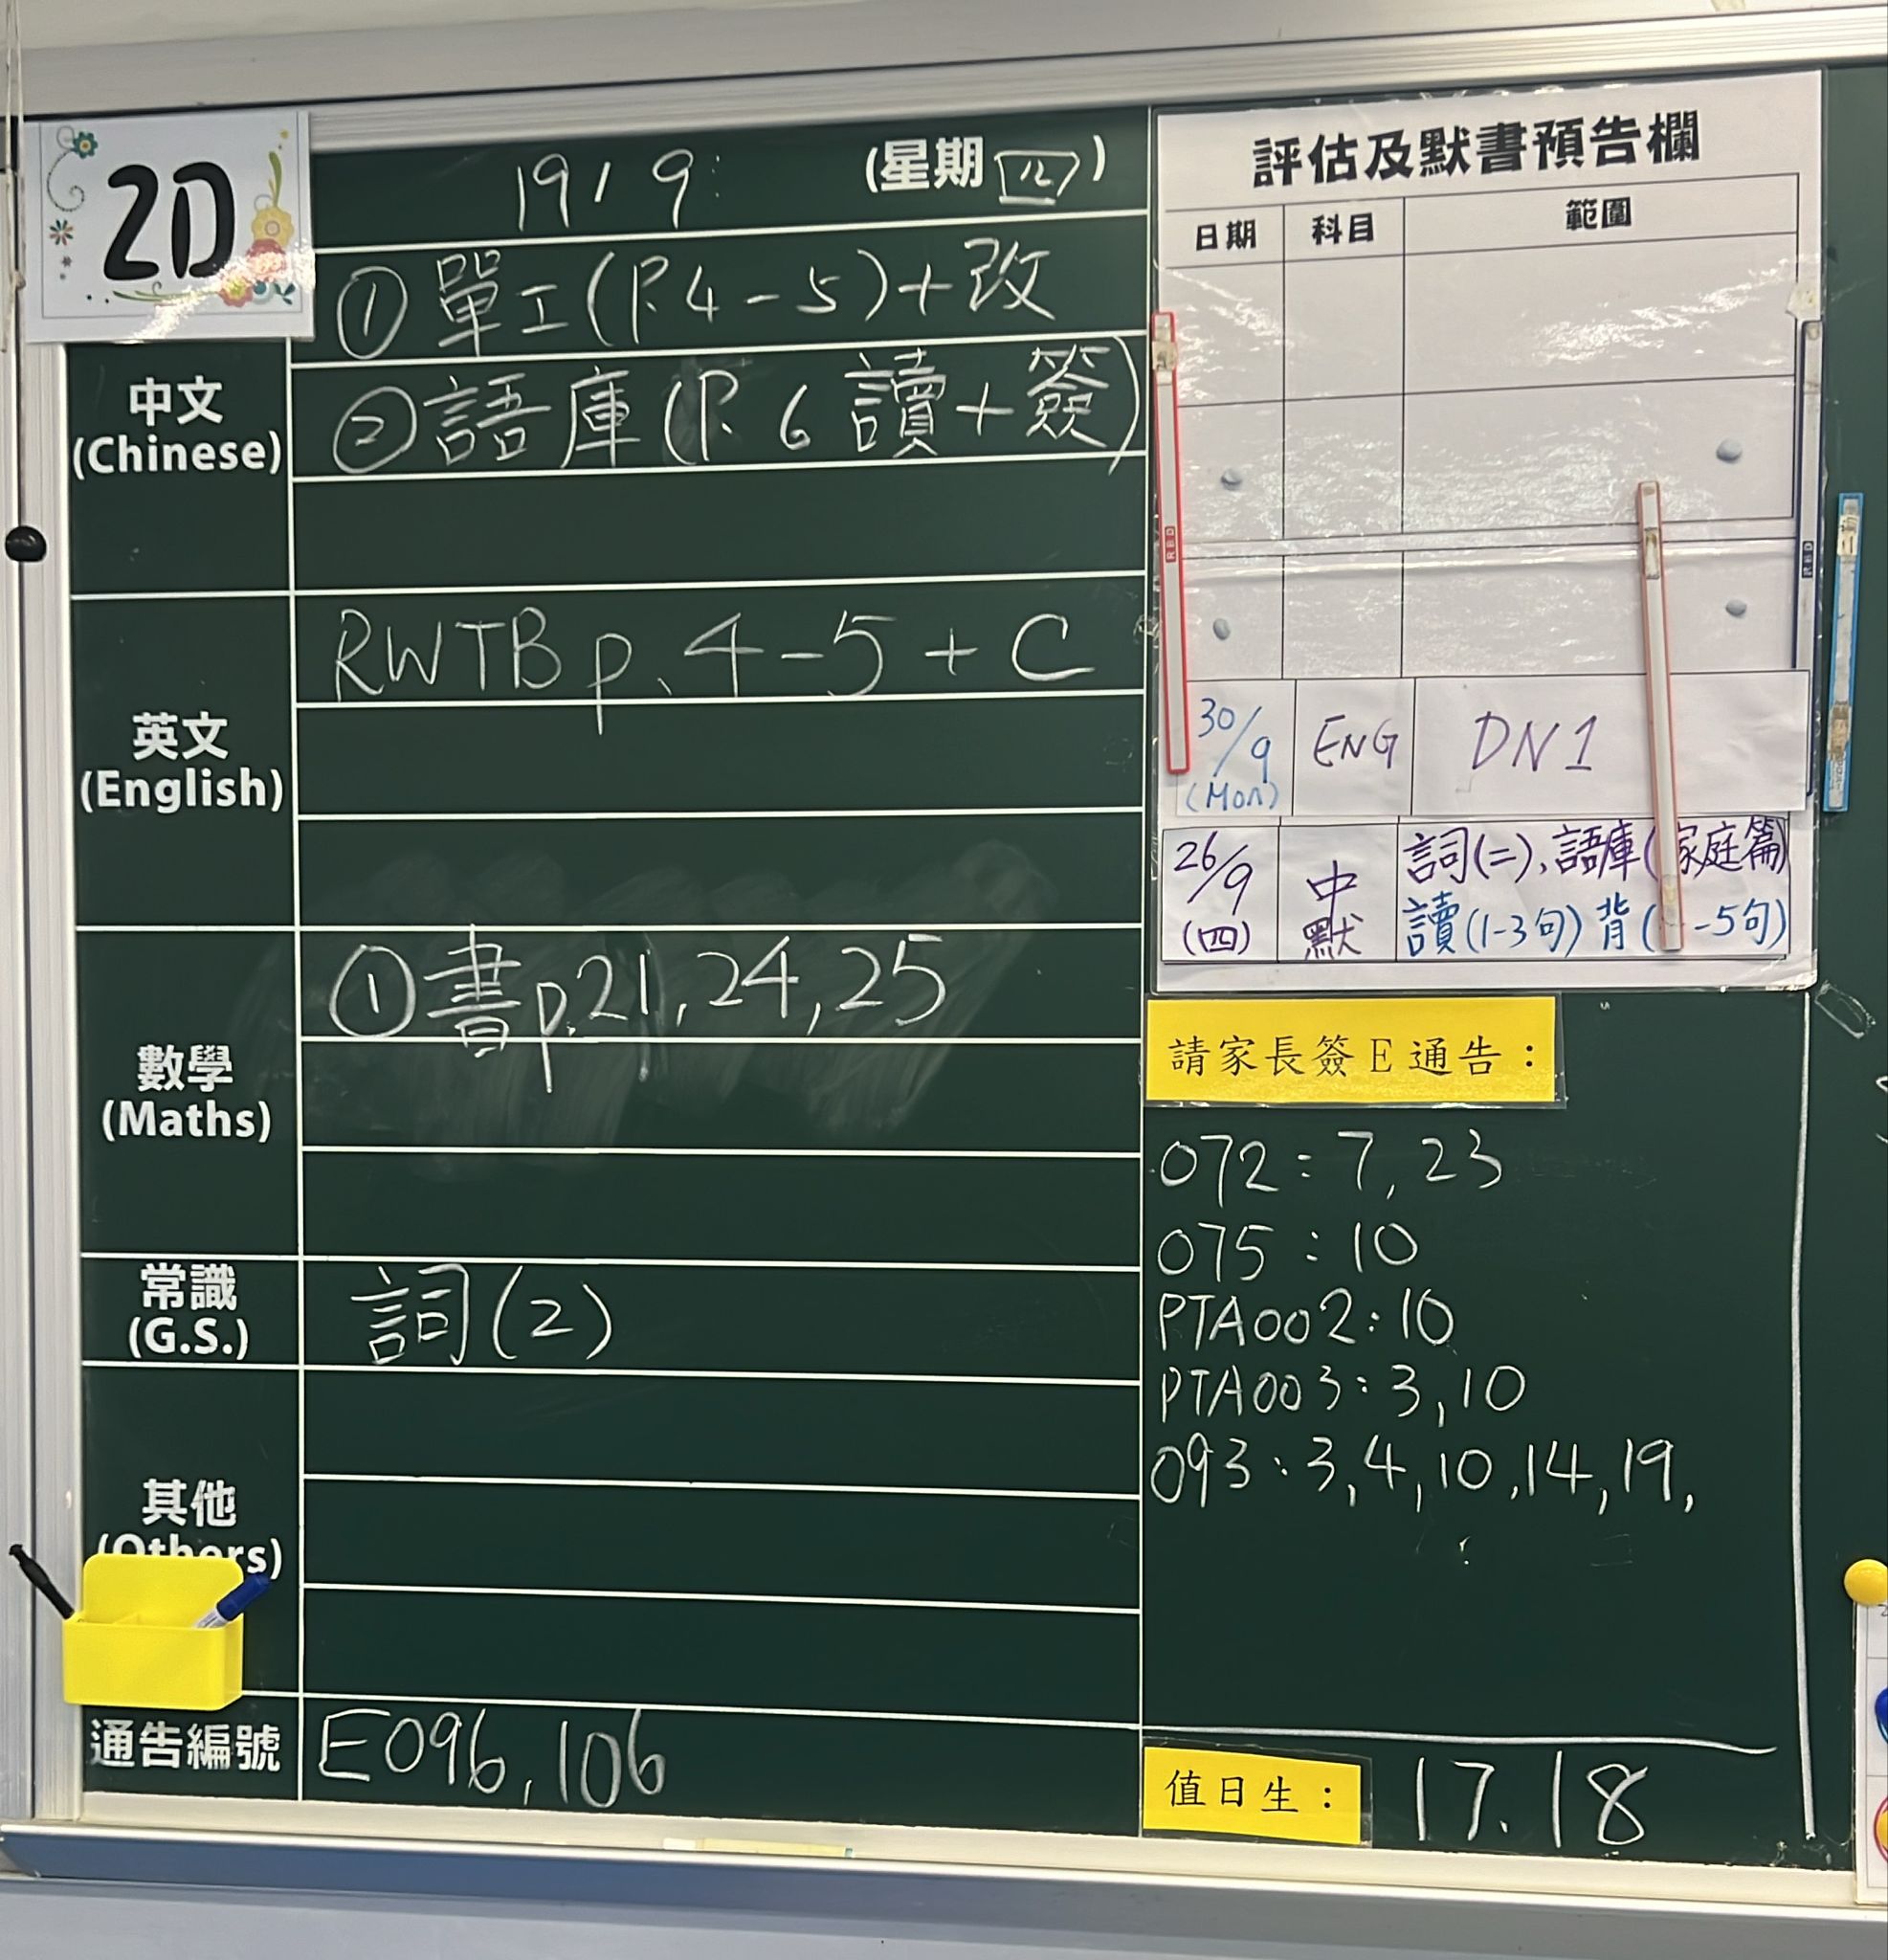 2D
19/9 (星期四)
中文
(Chinese)
① 單工(P.4-5)+改
② 語庫(P.6 讀+簽)
英文
(English)
RWTB p.4-5+C
數學
(Maths)
① 書p.21, 24, 25
常識
(G.S.)
詞(2)
其他
(Others)
通告編號
E096, 106
評估及默書預告欄
日期 科目 範圍
30/9 (Mon) ENG DN1
26/9 (四) 中默 詞(二)、語庫(家庭篇
讀(1-3句) 背( -5句)
請家長簽E通告：
072：7, 23
075：10
PTA002：10
PTA003：3, 10
093：3, 4, 10, 14, 19,
值日生： 17. 18
RED